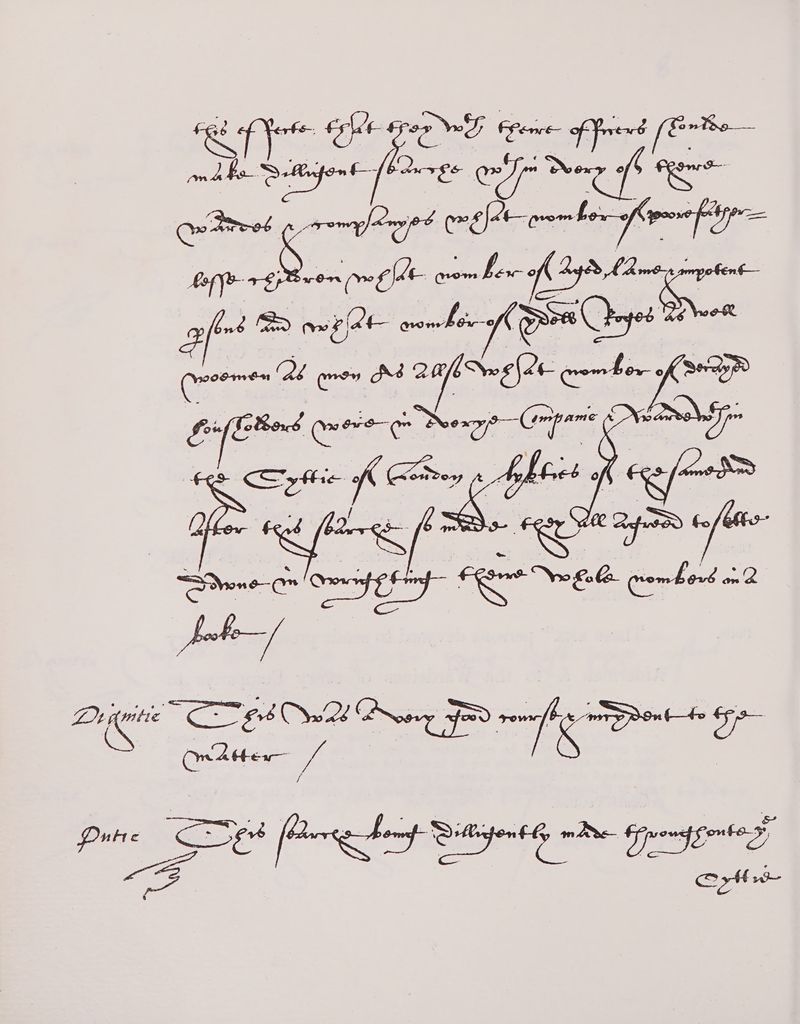 this effecte that they wth theire officers shoulde
make dilligent searche wthin every off theire
wardes & companyes what nomber off poore father=
lesse children what nomber off aged, lame & impotent
psons and what nomber off ydell Roges as well
woemen as men As allso what nomber off decayed
housholders were in everye Companie & warde wthin
the Cyttie off London & lybties off the same And
After this searche so made they all agreed to sette
downe in wrighting theire whole nombers in a
booke /
Dignitie This was a very good course & incydent to the
matter /
Dutie This searche being dilligently made throughoute ye
Cyttie